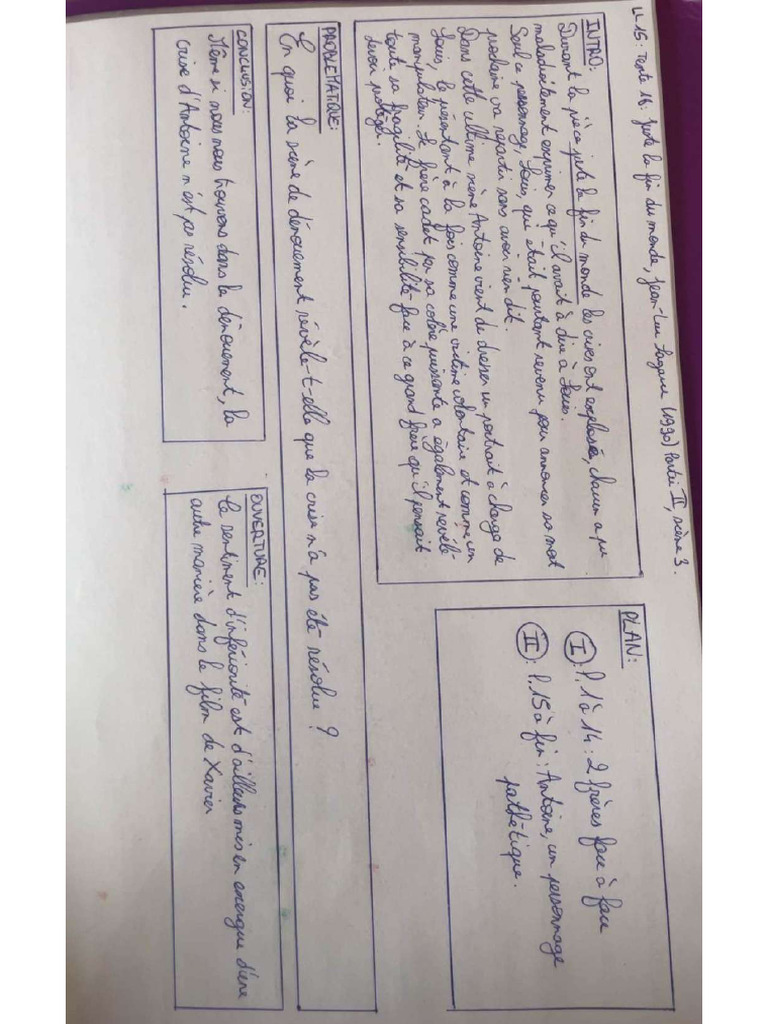 LL 15: Texte 16: Juste la fin du monde, Jean-Luc Lagarce (1990) Partie II, scène 3.
INTRO:
Durant la pièce juste la fin du monde les crises ont explosée, chacun a pu
maladroitement exprimer ce qu'il avait à dire à Louis.
Seul ce personnage, Louis, qui était pourtant revenu pour annoncer sa mort
prochaine va repartir sans avoir rien dit.
Dans cette ultime scène Antoine vient de dresser un portrait à charge de
Louis, le présentant à la fois comme une victime volontaire et comme un
manipulateur. Le frère cadet par sa colère puissante a également révélé
toute sa fragilité et sa sensibilité face à ce grand frère qu'il pensait
devoir protéger.
PLAN:
I: l.1 à 14: 2 frères face à face
II: l.15 à fin: Antoine, un personnage
pathétique.
PROBLÉMATIQUE:
En quoi la scène de dénouement révèle-t-elle que la crise n'a pas été résolue ?
CONCLUSION:
Même si nous nous trouvons dans le dénouement, la
crise d'Antoine n'est pas résolue.
OUVERTURE:
Le sentiment d'infériorité est d'ailleurs mis en exergue d'une
autre manière dans le film de Xavier